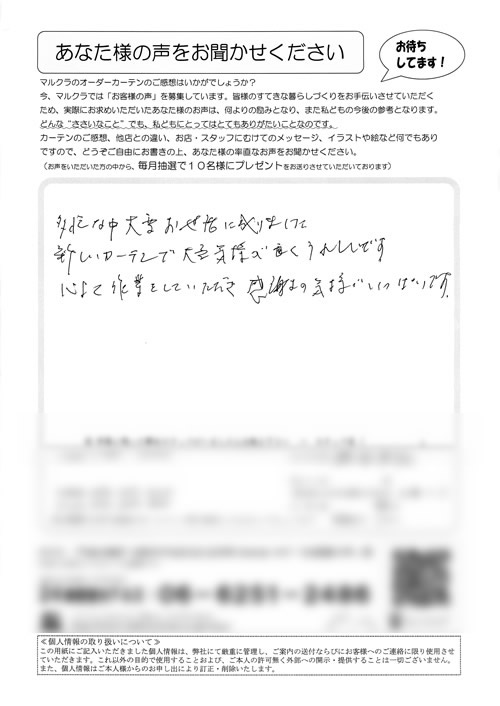 あなた様の声をお聞かせください
お待ち
してます！
マルクラのオーダーカーテンのご感想はいかがでしょうか？
今、マルクラでは「お客様の声」を募集しています。皆様のすてきな暮らしづくりをお手伝いさせていただく
ため、実際にお求めいただいたあなた様のお声は、何よりの励みとなり、また私どもの今後の参考となります。
どんな“ささいなこと”でも、私どもにとってはとてもありがたいことなのです。
カーテンのご感想、他店との違い、お店・スタッフにむけてのメッセージ、イラストや絵など何でもあり
ですので、どうぞご自由にお書きの上、あなた様の率直なお声をお聞かせください。
（お声をいただいた方の中から、毎月抽選で１０名様にプレゼントをお送りさせていただいております）
多忙な中大変お世話に成りました
新しいカーテンで大変気持が良くうれしいです
心よく作業をしていただき感謝の気持でいっぱいです。
06-6251-2486
≪個人情報の取り扱いについて≫
この用紙にご記入いただきました個人情報は、弊社にて厳重に管理し、ご案内の送付ならびにお客様へのご連絡に限り使用させ
ていただきます。これ以外の目的で使用することおよび、ご本人の許可無く外部への開示・提供することは一切ございません。
また、個人情報はご本人様からのお申し出により訂正・削除いたします。